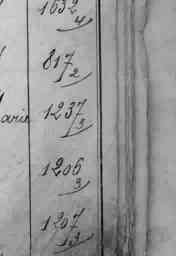 1632
4
817
2
arie 1237
3
1206
3
1207
13